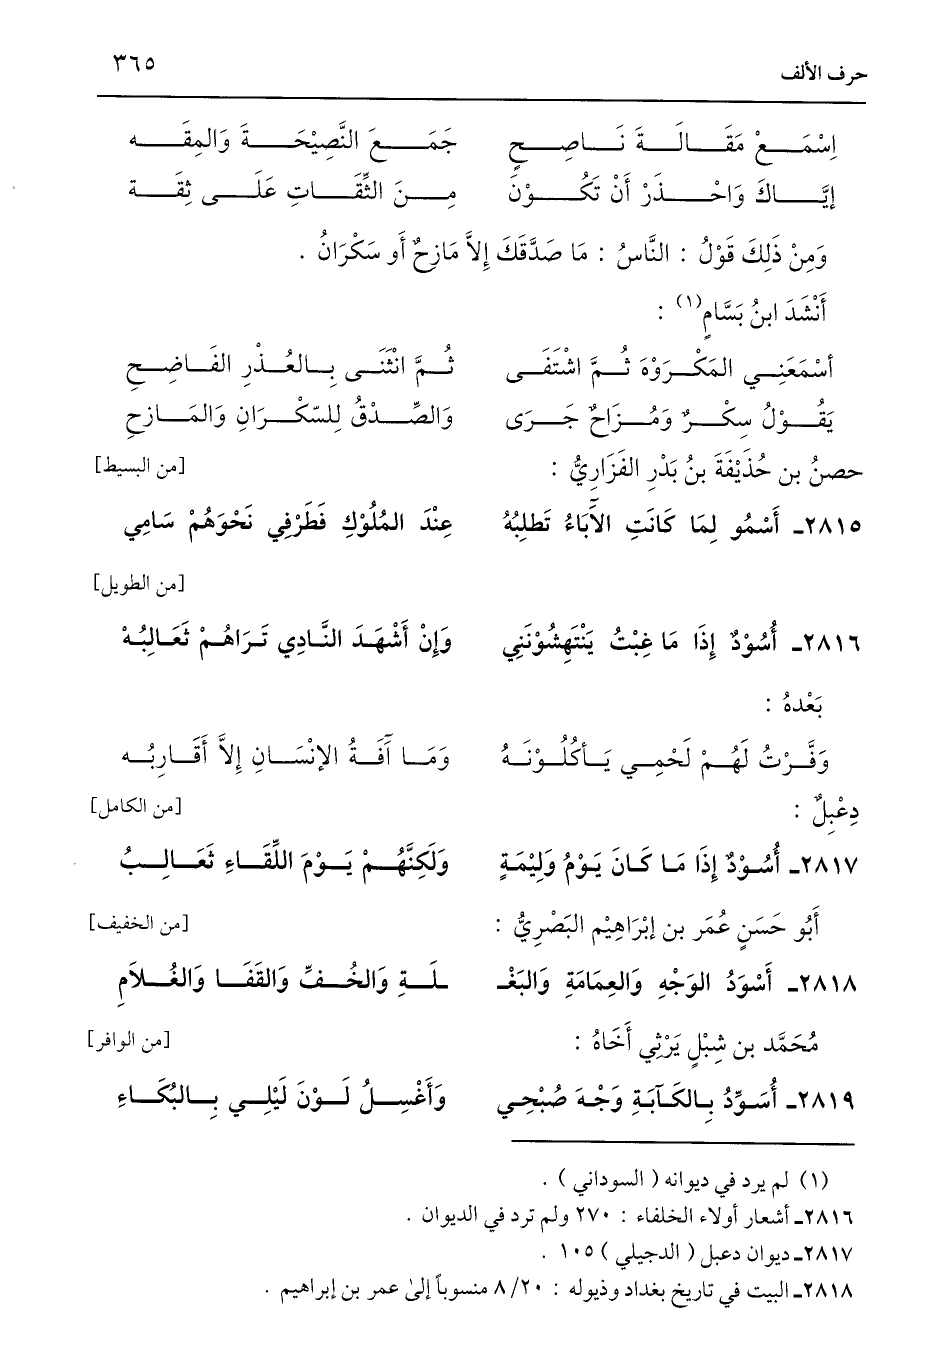 حرف الألف ٣٦٥
إِسْمَعْ مَقَالَةَ نَاصِحٍ جَمَعَ النَّصِيْحَةَ وَالمِقَه
إيَّاكَ وَاحْذَرْ أَنْ تَكُوْنَ مِنَ الثِّقَاتِ عَلَى ثِقَة
وَمِنْ ذَلِكَ قَوْلُ : النَّاسُ : مَا صَدَّقَكَ إِلاَّ مَازِحٌ أَو سَكْرَانُ .
أَنْشَدَ ابنُ بَسَّامٍ(١) :
أَسْمَعَنِي المَكْرَوْهَ ثُمَّ اشْتَفَى ثُمَّ انْثَنَى بِالعُذْرِ الفَاضِحِ
يَقُوْلُ سِكْرٌ وَمُزَاحٌ جَرَى وَالصِّدْقُ لِلسّكْرَانِ وَالمَازِحِ
حصنُ بن حُذَيْفَةَ بنُ بَدْرِ الفَزَارِيُّ : [من البسيط]
٢٨١٥ـ أَسْمُو لِمَا كَانَتِ الآبَاءُ تَطلِبُهُ عِنْدَ المُلُوْكِ فَطَرْفِي نَحْوَهُمْ سَامِي
[من الطويل]
٢٨١٦ـ أُسُوْدٌ إِذَا مَا غِبْتُ يَنْتَهِشُوْنَنِي وَإِنْ أَشْهَدَ النَّادِي تَرَاهُمْ ثَعَالِبُهْ
بَعْدهُ :
وَفَّرْتُ لَهُمْ لَحْمِي يَأكُلُوْنَهُ وَمَا آفَةُ الإنْسَانِ إِلاَّ أَقَارِبُه
دِعْبِلٌ : [من الكامل]
٢٨١٧ـ أُسُوْدٌ إِذَا مَا كَانَ يَوْمُ وَلِيْمَةٍ وَلَكِنَّهُمْ يَوْمَ اللِّقَاءِ ثَعَالِبُ
أَبُو حَسَنٍ عُمَر بن إِبْرَاهِيْم البَصْرِيُّ : [من الخفيف]
٢٨١٨ـ أَسْوَدُ الوَجْهِ وَالعِمَامَةِ وَالبَغْـ ـلَةِ وَالخُفِّ وَالقَفَا وَالغُلاَمِ
مُحَمَّد بن شِبْلٍ يَرْثِي أَخَاهُ : [من الوافر]
٢٨١٩ـ أُسَوِّدُ بِالكَآبَةِ وَجْهَ صُبْحِي وَأَغْسِلُ لَوْنَ لَيْلِي بِالبُكَاءِ
(١) لم يرد في ديوانه ( السوداني ) .
٢٨١٦ـ أشعار أولاء الخلفاء : ٢٧٠ ولم ترد في الديوان .
٢٨١٧ـ ديوان دعبل ( الدجيلي ) ١٠٥ .
٢٨١٨ـ البيت في تاريخ بغداد وذيوله : ٢٠/ ٨ منسوباً إلى عمر بن إبراهيم .